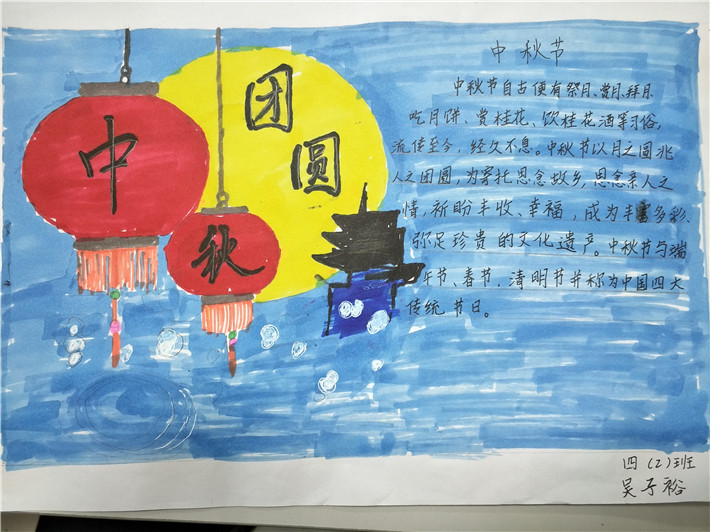 中
秋
团
圆
中秋节
中秋节自古便有祭月、赏月、拜月、
吃月饼、赏桂花、饮桂花酒等习俗，
流传至今，经久不息。中秋节以月之圆兆
人之团圆，为寄托思念故乡，思念亲人之
情，祈盼丰收、幸福，成为丰富多彩、
弥足珍贵的文化遗产。中秋节与端
午节、春节、清明节并称为中国四大
传统节日。
四（2）班
吴子裕